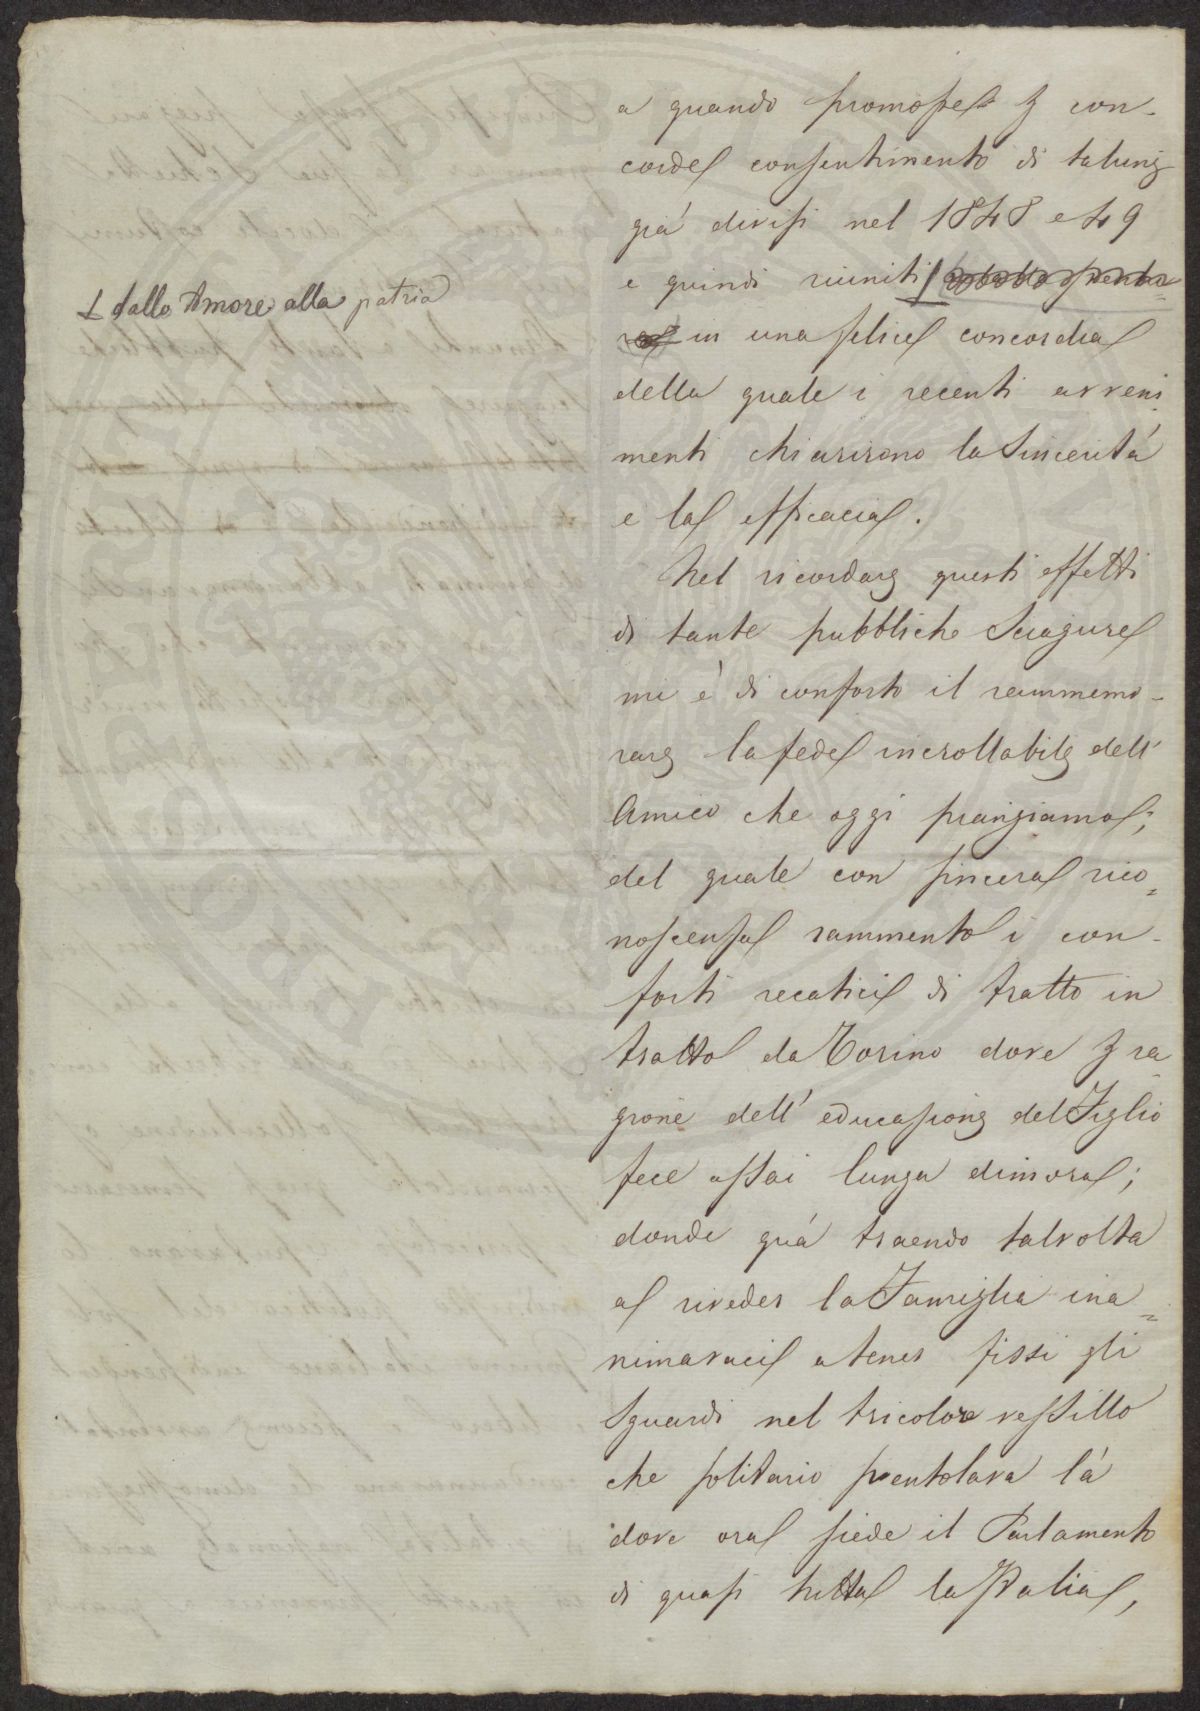 a quando promosse p con-
corde consentimento di taluni
già divisi nel 1848 e 49
e quindi riuniti dalla sventu=
ra in una felice concordia
⊥ dallo Amore alla patria
della quale i recenti avveni-
menti chiarirono la Sincerità
e la efficacia.
Nel ricordare questi effetti
di tante pubbliche Sciagure
mi è di conforto il rammemo-
rare la fede incrollabile dell'
Amico che oggi piangiamo;
del quale con sincera rico=
noscenza rammento i con-
forti recatici di tratto in
tratto da Torino dove p ra
gione dell' educazione del Figlio
fece assai lunga dimora;
donde quà traendo talvolta
a riveder la Famiglia ina=
nimavaci a tener fissi gli
Sguardi nel tricolore vessillo
che solitario sventolava là
dove ora siede il Parlamento
di quasi tutta la Italia,